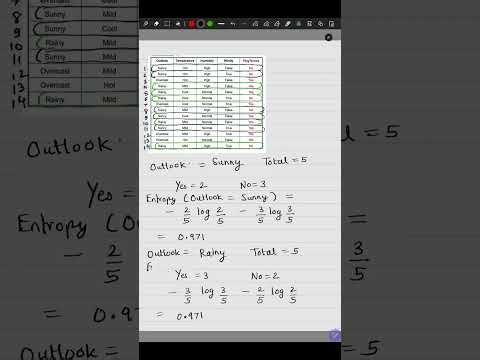 Outlook Temperature Humidity Windy
1 Sunny Hot High False No
2 Sunny Hot High True No
3 Overcast Hot High False Yes
4 Rainy Mild High False Yes
5 Rainy Cool Normal False Yes
6 Rainy Cool Normal True No
7 Overcast Cool Normal True Yes
8 Sunny Mild High False No
9 Sunny Cool Normal False Yes
10 Rainy Mild Normal False Yes
11 Sunny Mild Normal True Yes
12 Overcast Mild High True Yes
13 Overcast Hot Normal False Yes
14 Rainy Mild High True No
Outlook = Sunny Total = 5
Yes = 2 No = 3
Entropy (Outlook = Sunny) =
- 2/5 log 2/5 - 3/5 log 3/5
= 0.971
Outlook = Rainy Total = 5
Yes = 3 No = 2
- 3/5 log 3/5 - 2/5 log 2/5
= 0.971
8 Sunny Mild
9 Sunny Cool
10 Rainy Mild
11 Sunny Mild
12 Overcast Mild
13 Overcast Hot
14 Rainy Mild
Outlook
Entropy (
- 2/5
= 5
3/5